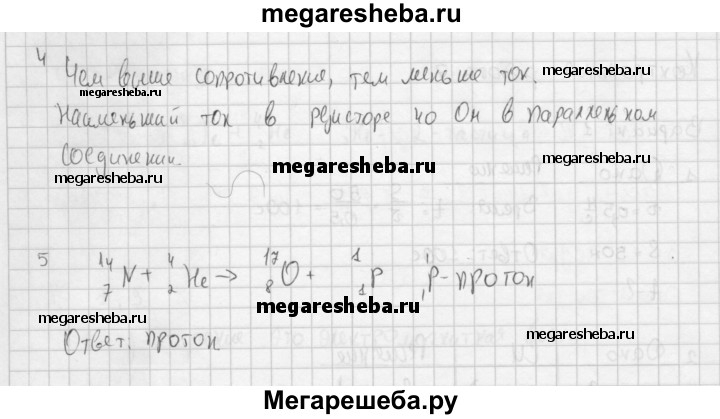 megaresheba.ru
4
Чем выше сопротивление, тем меньше ток.
megaresheba.ru
megaresheba.ru
Наименьший ток в резисторе 40 Ом в параллельном
megaresheba.ru
соединении.
megaresheba.ru
megaresheba.ru
5 ¹⁴₇N + ⁴₂He → ¹⁷₈O + ¹₁P ¹₁P - протон
megaresheba.ru
megaresheba.ru
megaresheba.ru
Ответ: протон
Мегарешеба.ру